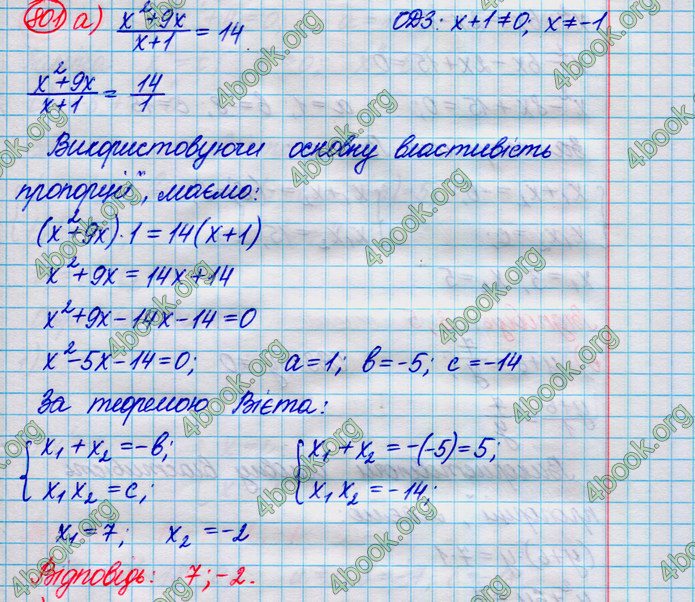 801 а) (x²+9x)/(x+1) = 14   ОДЗ: x+1≠0; x≠-1
(x²+9x)/(x+1) = 14/1
Використовуючи основну властивість
пропорції, маємо:
(x²+9x)·1=14(x+1)
x²+9x=14x+14
x²+9x-14x-14=0
x²-5x-14=0;   a=1; b=-5; c=-14
За теоремою Вієта:
{ x₁+x₂=-b;   { x₁+x₂=-(-5)=5;
x₁x₂=c;   x₁x₂=-14;
x₁=7;   x₂=-2
Відповідь: 7; -2.
4book.org